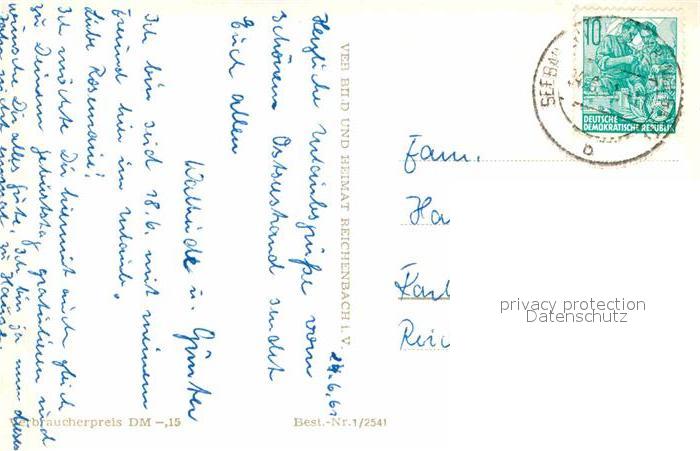 Herzliche Urlaubsgrüße vom
schönen Ostseestrand sendet
Euch allen
Waltraude u. Günter
24.6.61
Ich bin seid 18.6. mit meinem
Freund hier im Urlaub.
Liebe Rosemarie!
Ich möchte Dir hiermit auch gleich
zu Deinem Geburtstag gratulieren und
wünsche Dir alles Gute. Ich bin ja nun dieses
Jahr nicht einmal zu Hause.
VEB BILD UND HEIMAT REICHENBACH i. V.
Verbraucherpreis DM -,15
Best.-Nr. 1/2541
10
DEUTSCHE
DEMOKRATISCHE REPUBLIK
SEEBAD
b
Fam.
Ha
Karl
Reic
privacy protection
Datenschutz